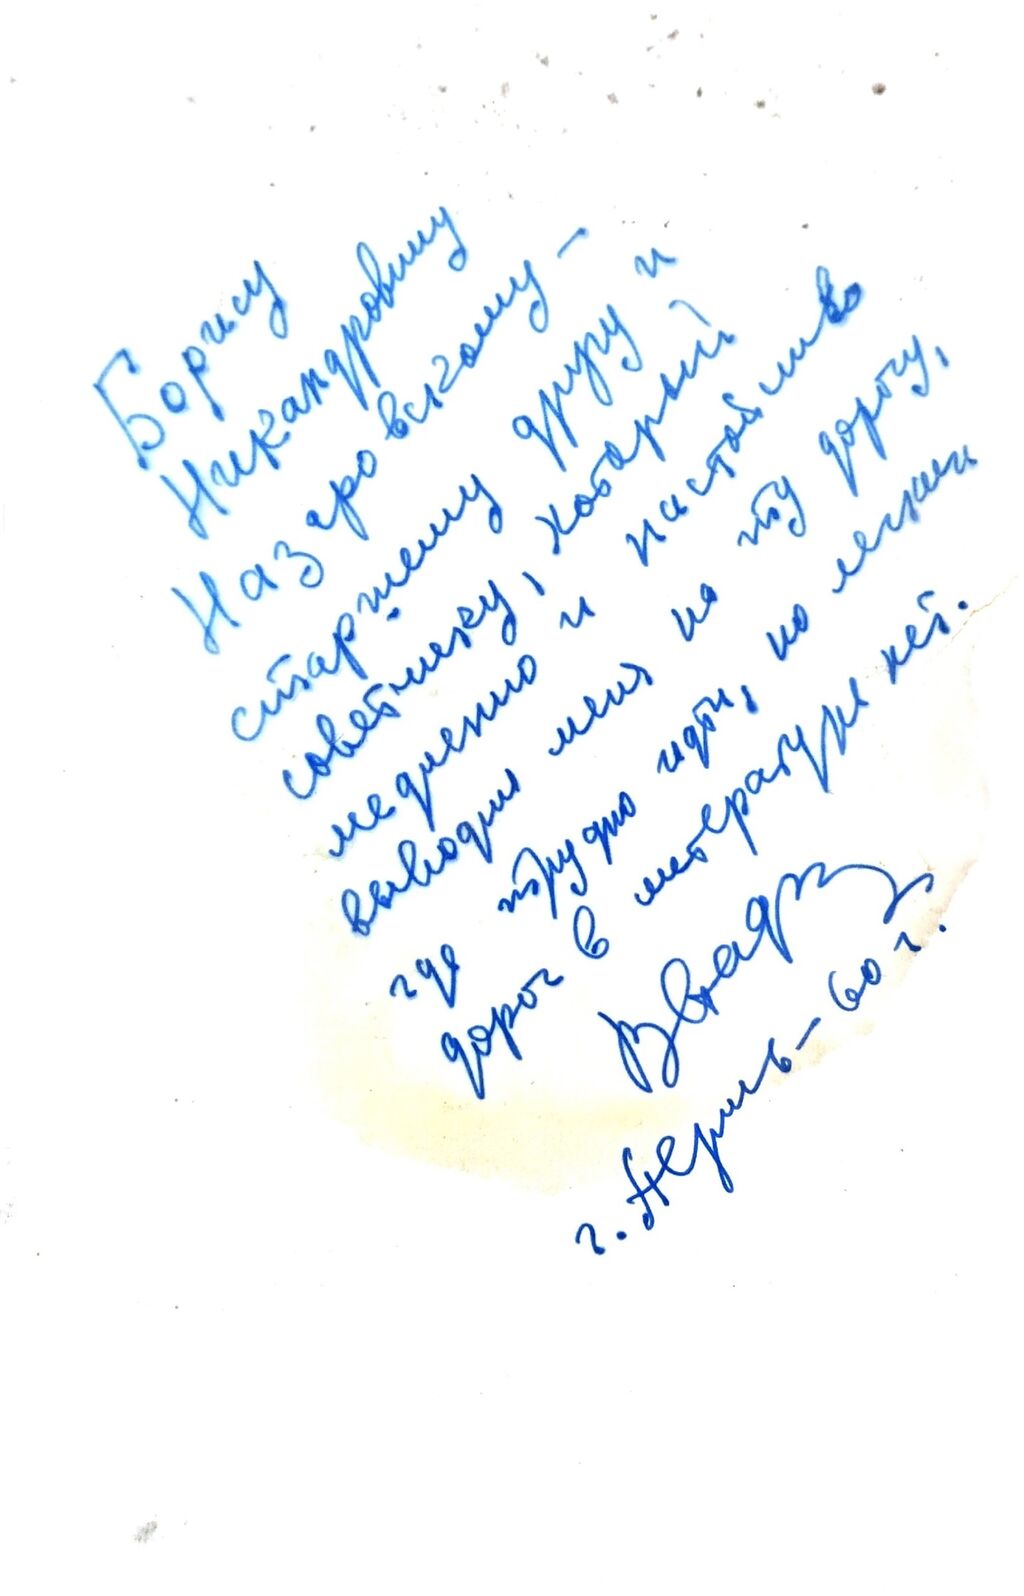 Борису
Никандровичу
Назаровскому –
старшему другу и
советчику, который
медленно и настойчиво
выводил меня на ту дорогу,
где трудно идти, но легких
дорог в литературе нет.
г. Пермь – 60 г.